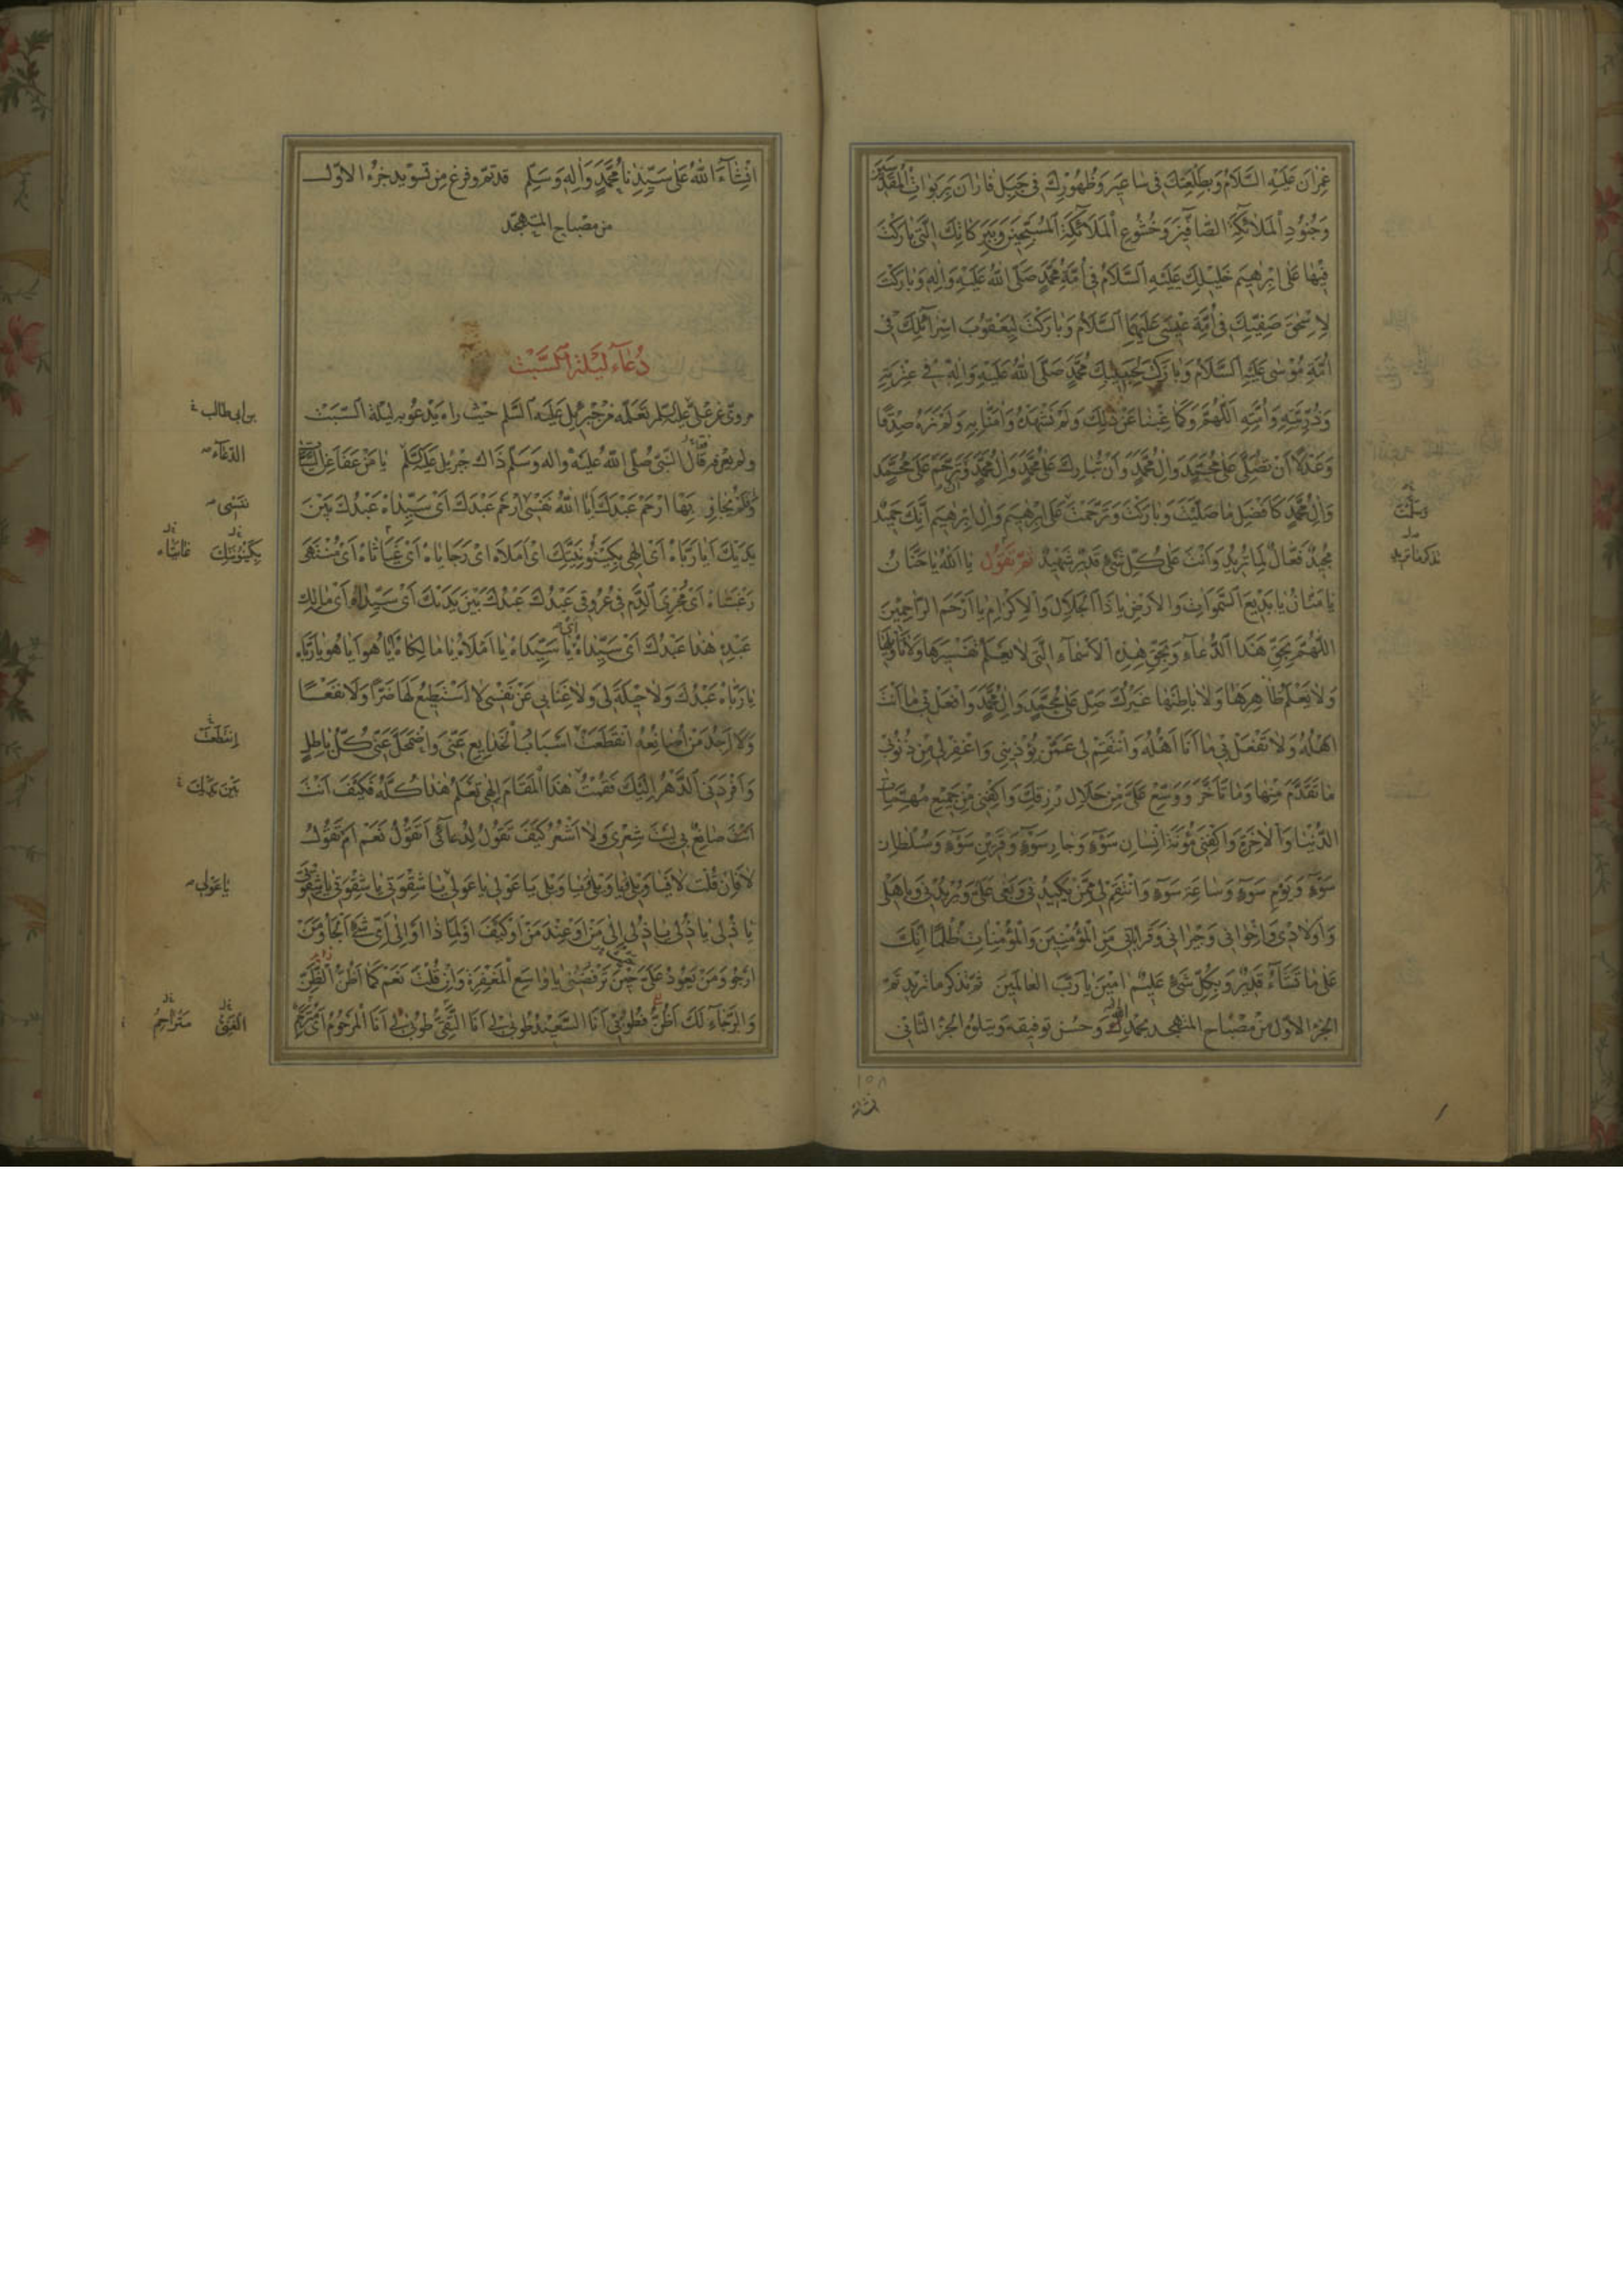 عِمْرانَ عَلَيْهِ السَّلامُ وَبِطَلْعَتِكَ فى ساعيرَ وَظُهُورِكَ فى جَبَلِ فارانَ بِرَبَواتِ الْمُقَدَّسينَ
وَجُنُودِ الْمَلائِكَةِ الصّافّينَ وَخُشُوعِ الْمَلائِكَةِ الْمُسَبِّحينَ وَبِبَرَكاتِكَ الَّتى بارَكْتَ
فيها عَلى اِبْرهيمَ خَليلِكَ عَلَيْهِ السَّلامُ فى اُمَّةِ مُحَمَّدٍ صَلَّى اللهُ عَلَيْهِ وَالِهِ وَبارَكْتَ
لِاِسْحقَ صَفِيِّكَ فى اُمَّةِ عيسى عَلَيْهِمَا السَّلامُ وَبارَكْتَ لِيَعْقُوبَ اِسْرائِلِكَ فى
اُمَّةِ مُوسى عَلَيْهِ السَّلامُ وَبارَكْتَ لِحَبيبِكَ مُحَمَّدٍ صَلَّى اللهُ عَلَيْهِ وَالِهِ فى عِتْرَتِهِ
وَذُرِّيَّتِهِ وَاُمَّتِهِ اَللّهُمَّ وَكَما غِبْنا عَنْ ذلِكَ وَلَمْ نَشْهَدْهُ وَامَنّا بِهِ وَلَمْ نَرَهُ صِدْقًا
وَعَدْلًا اَنْ تُصَلِّىَ عَلى مُحَمَّدٍ وَالِ مُحَمَّدٍ وَاَنْ تُبارِكَ عَلى مُحَمَّدٍ وَالِ مُحَمَّدٍ وَتَرَحَّمَ عَلى مُحَمَّدٍ
وَالِ مُحَمَّدٍ كَاَفْضَلِ ما صَلَّيْتَ وَبارَكْتَ وَتَرَحَّمْتَ عَلى اِبْرهيمَ وَالِ اِبْرهيمَ اِنَّكَ حَميدٌ
مَجيدٌ فَعّالٌ لِما تُريدُ وَاَنْتَ عَلى كُلِّ شَىْءٍ قَديرٌ شَهيدٌ ثمّ تقول يا اَللهُ يا حَنّانُ
يا مَنّانُ يا بَديعَ السَّمواتِ وَالْاَرْضِ يا ذَا الْجَلالِ وَالْاِكْرامِ يا اَرْحَمَ الرّاحِمينَ
اَللّهُمَّ بِحَقِّ هذَا الدُّعاءِ وَبِحَقِّ هذِهِ الْاَسْماءِ الَّتى لا يَعْلَمُ تَفْسيرَها وَلا تَأْويلَها
وَلا يَعْلَمُ ظاهِرَها وَلا باطِنَها غَيْرُكَ صَلِّ عَلى مُحَمَّدٍ وَالِ مُحَمَّدٍ وَافْعَلْ بى ما اَنْتَ
اَهْلُهُ وَلا تَفْعَلْ بى ما اَنَا اَهْلُهُ وَانْتَقِمْ لى مِمَّنْ يُؤْذينى وَاغْفِرْ لى مِنْ ذُنُوبى
ما تَقَدَّمَ مِنْها وَما تَاَخَّرَ وَوَسِّعْ عَلَىَّ مِنْ حَلالِ رِزْقِكَ وَاكْفِنى مِنْ جَميعِ مُهِمّاتِ
الدُّنْيا وَالْاخِرَةِ وَاكْفِنى مَؤُنَةَ اِنْسانِ سَوْءٍ وَجارِ سَوْءٍ وَقَرينِ سَوْءٍ وَسُلْطانِ
سَوْءٍ وَيَوْمِ سَوْءٍ وَساعَةِ سَوْءٍ وَانْتَقِمْ لى مِمَّنْ يَكيدُنى وَيَبْغى عَلَىَّ وَيُريدُ بى وَبِاَهْلى
وَاَوْلادى وَاِخْوانى وَجيرانى وَقَراباتى مِنَ الْمُؤْمِنينَ وَالْمُؤْمِناتِ ظُلْمًا اِنَّكَ
عَلى ما تَشاءُ قَديرٌ وَبِكُلِّ شَىْءٍ عَليمٌ امينَ يا رَبَّ الْعالَمينَ ثمّ تذكر ما تريد تمّ
الجزء الاوّل من مصباح المتهجد بحمد الله وحسن توفيقه ويتلوه الجزء الثانى
وسلمت
تذكر ما تريد
١٥٨
اِنْشاءَ اللهُ عَلى سَيِّدِنا مُحَمَّدٍ وَالِهِ وَسَلِّمْ قد تمّ وفرغ من تسويد جزء الاوّل
من مصباح المتهجّد
دُعاءُ لَيْلَةِ السَّبْتِ
مروىّ عن علىّ عليه السّلم تعلّمه من جبرئيل عليه السّلم حيث راه يدعو به ليلة السّبت
ولم يعرفه فقال النّبىّ صلّى الله عليه واله وسلّم ذاك جبريل عليه السّلم يا مَنْ عَفا عَنِ السَّيِّئاتِ
وَلَمْ يُجازِ بِهَا ارْحَمْ عَبْدَكَ يا اَللهُ نَفْسى ارْحَمْ عَبْدَكَ اَىْ سَيِّداهُ عَبْدُكَ بَيْنَ
يَدَيْكَ اَيا رَبّاهُ اَىْ اِلهى بِكَيْنُونِيَّتِكَ اَىْ اَمَلاهُ اَىْ رَجاياهُ اَىْ غَياثاهُ اَىْ مُنْتَهى
رَغْبَتاهُ اَىْ مُجْرِىَ الدَّمِ فى عُرُوقى عَبْدُكَ عَبْدُكَ بَيْنَ يَدَيْكَ اَىْ سَيِّداهُ اَىْ مالِكَ
عَبْدِهِ هذا عَبْدُكَ اَىْ سَيِّداهُ يا سَيِّداهُ يا اَمَلاهُ يا مالِكاهُ اَيا هُوَ اَيا هُوَ يا رَبّاهُ
يا رَبّاهُ عَبْدُكَ وَلا حيلَةَ لى وَلا غِنًا بى عَنْ نَفْسى لا اَسْتَطيعُ لَها ضَرًّا وَلا نَفْعًا
وَلا اَجِدُ مَنْ اُصانِعُهُ انْقَطَعَتْ اَسْبابُ الْخَدايِعِ عَنّى وَاضْمَحَلَّ عَنّى كُلُّ باطِلٍ
وَاَفْرَدَنى الدَّهْرُ اِلَيْكَ فَقُمْتُ هذَا الْمَقامَ اِلهى تَعْلَمُ هذا كُلَّهُ فَكَيْفَ اَنْتَ
اَنْتَ صانِعٌ بى لَيْتَ شِعْرى وَلا اَشْعُرُ كَيْفَ تَقُولُ لِدُعائى اَتَقُولُ نَعَمْ اَمْ تَقُولُ
لا فَاِنْ قُلْتَ لا فَيا وَيْلى يا وَيْلى يا وَيْلى يا عَوْلى يا عَوْلى يا عَوْلى يا شِقْوَتى يا شِقْوَتى يا شِقْوَتى
يا ذُلّى يا ذُلّى يا ذُلّى اِلى مَنْ اَوْ عِنْدَ مَنْ اَوْ كَيْفَ اَوْ لِماذا اَوْ اِلى اَىِّ شَىْءٍ اَلْجَأُ وَمَنْ
اَرْجُو وَمَنْ يَعُودُ عَلَىَّ حينَ تَرْفُضُنى يا واسِعَ الْمَغْفِرَةِ وَاِنْ قُلْتَ نَعَمْ كَما اَظُنُّ الظَّنَّ
وَالرَّجاءَ لَكَ اَظُنُّ فَطُوبى لى اَنَا السَّعيدُ طُوبى لى اَنَا التَّقِىُّ طُوبى لى اَنَا الْمَرْحُومُ اَىْ مُتَرَحِّمُ
بن ابى طالب
الدّعاء
نفسى
بِكَيْنُونَتِكَ
اِنْقَطَعَتْ
يا عولى
مُتَراحِمُ